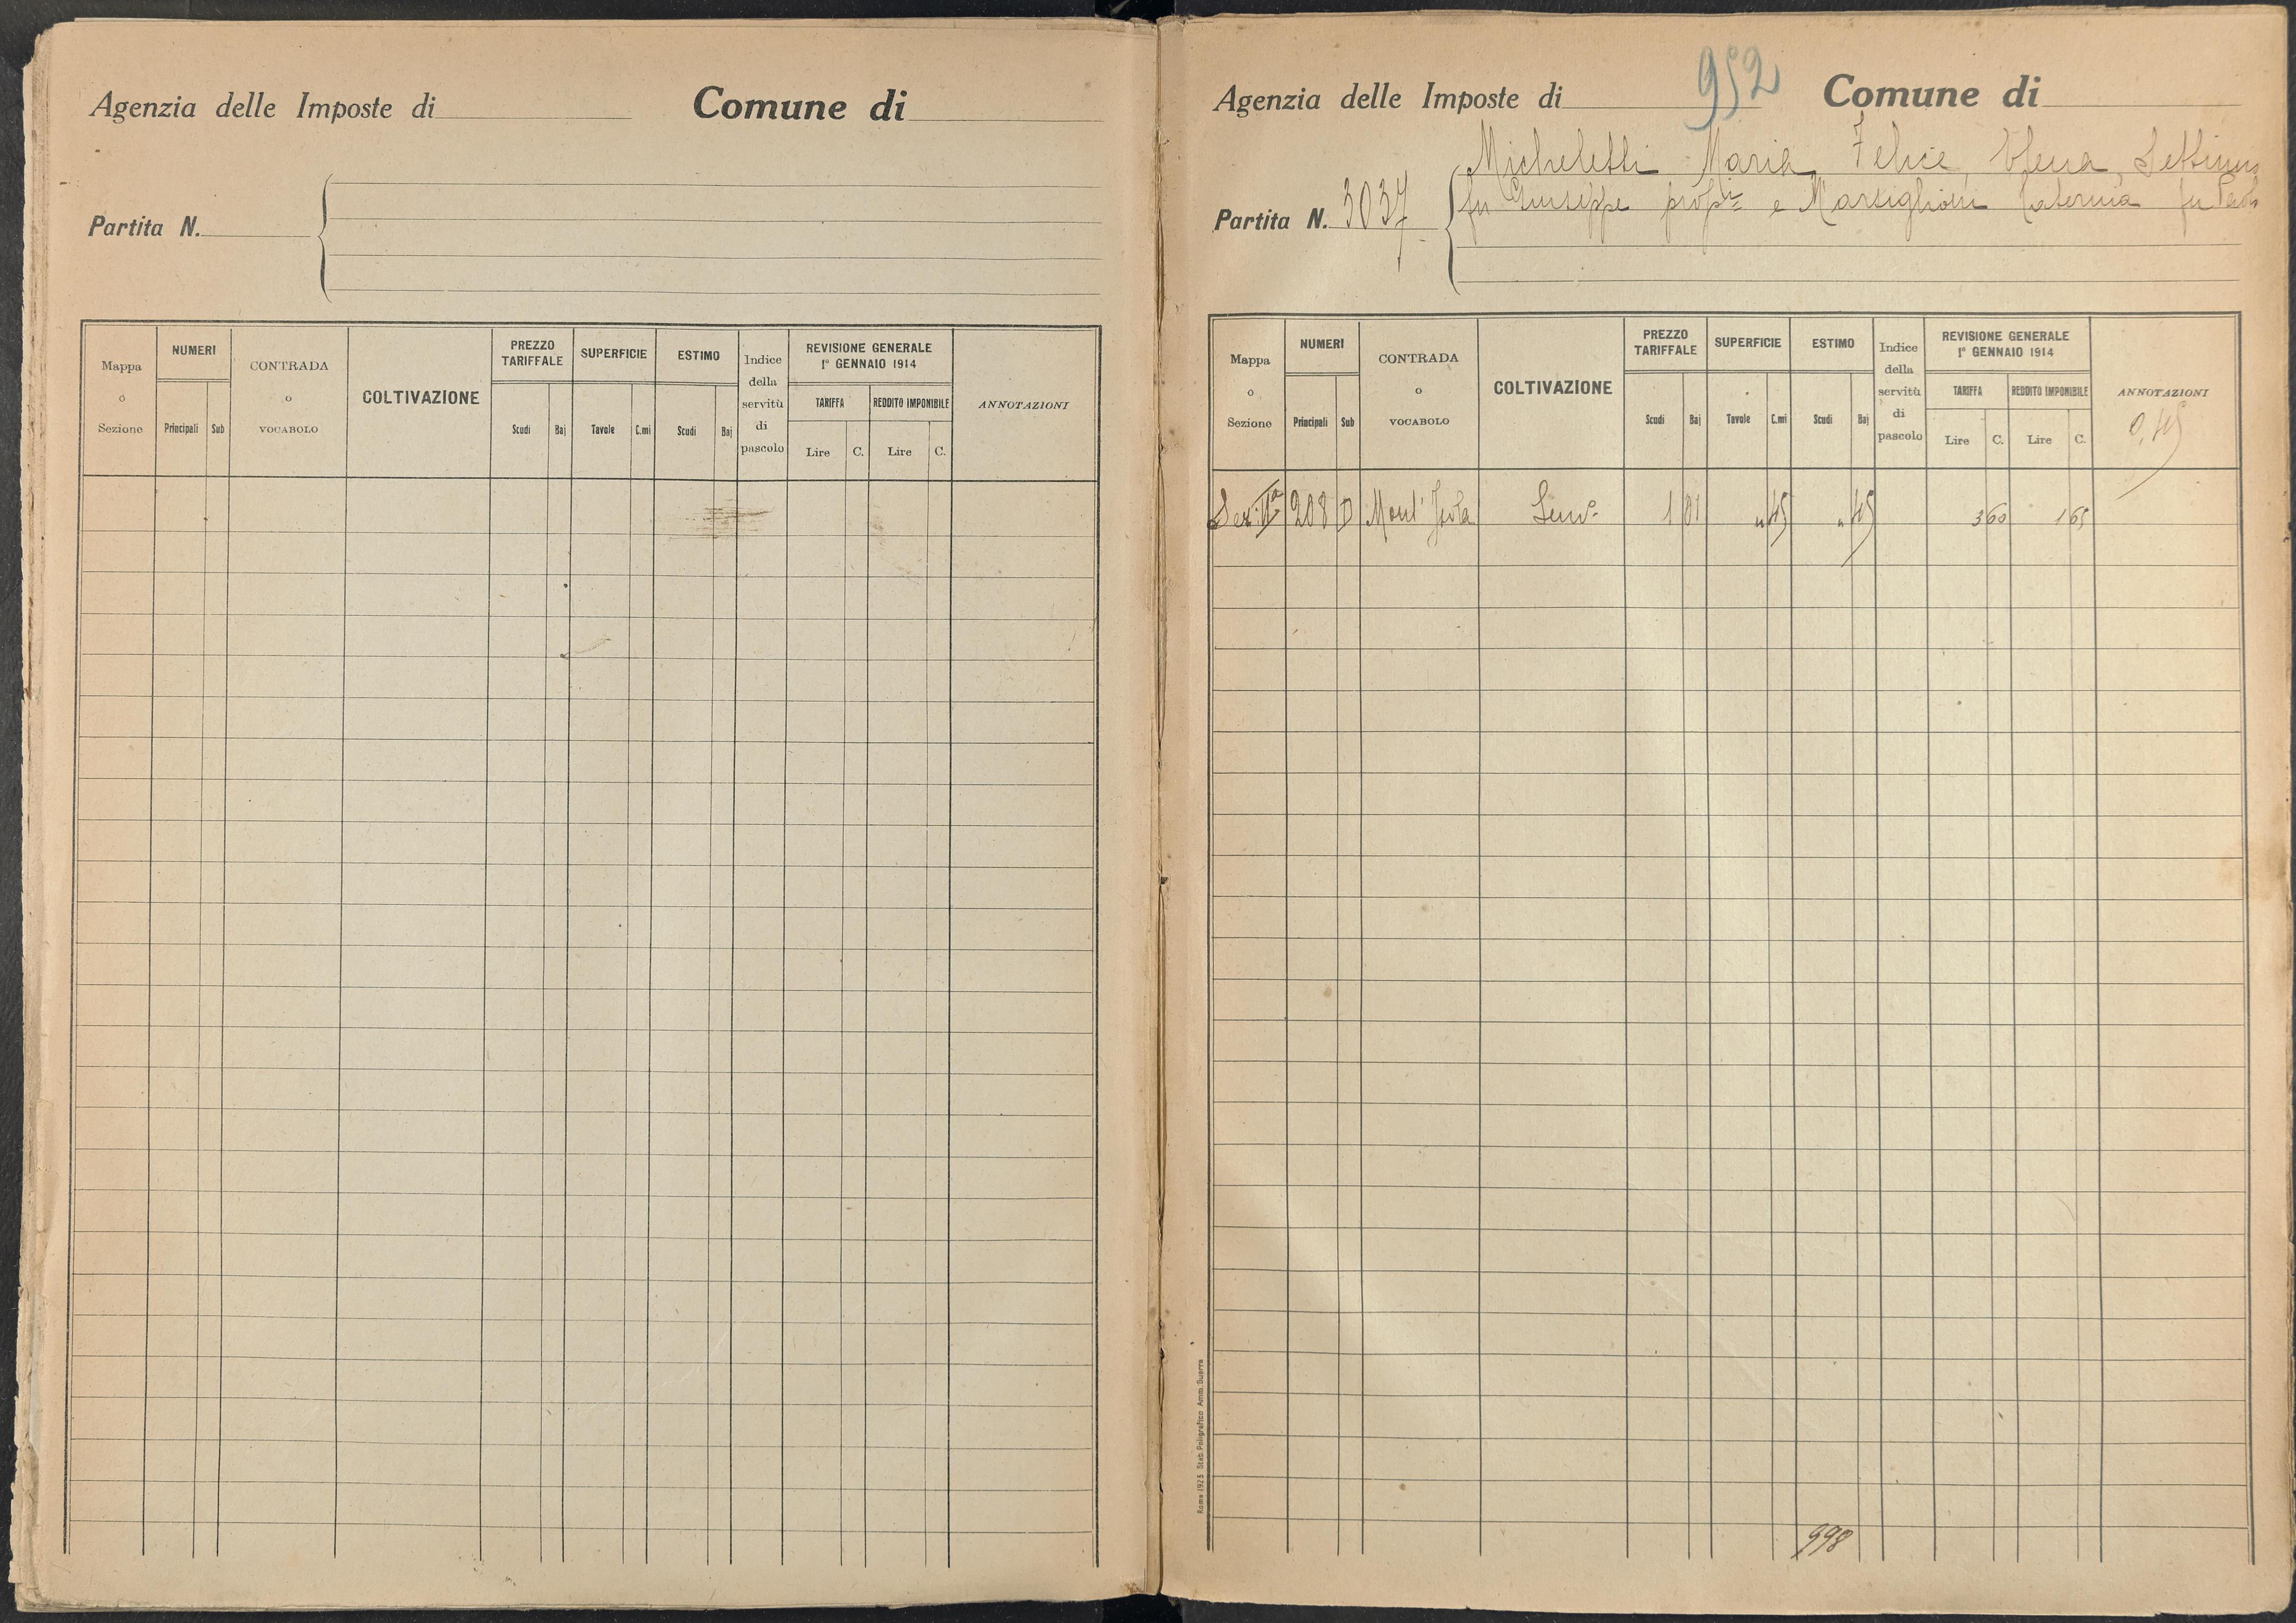 Agenzia delle Imposte di Comune di
Partita N.
Mappa o Sezione
NUMERI
Principali Sub
CONTRADA o VOCABOLO
COLTIVAZIONE
PREZZO TARIFFALE
Scudi Baj
SUPERFICIE
Tavole C.mi
ESTIMO
Scudi Baj
Indice della servitù di pascolo
REVISIONE GENERALE
1° GENNAIO 1914
TARIFFA REDDITO IMPONIBILE
Lire C. Lire C.
ANNOTAZIONI
952
Agenzia delle Imposte di Comune di
Micheletti Maria, Felice, Elena, Settimio
Partita N. 3037 fu Giuseppe propri e Marsiglioni Caterina fu Paolo
Mappa o Sezione
NUMERI
Principali Sub
CONTRADA o VOCABOLO
COLTIVAZIONE
PREZZO TARIFFALE
Scudi Baj
SUPERFICIE
Tavole C.mi
ESTIMO
Scudi Baj
Indice della servitù di pascolo
REVISIONE GENERALE
1° GENNAIO 1914
TARIFFA REDDITO IMPONIBILE
Lire C. Lire C.
ANNOTAZIONI
0,45
Sez. IIª 208 D Mont' Isola Semº 1 01 " 45 " 45 3 60 1 65
Roma 1923 Stab. Poligrafico Amm. Guerra
998